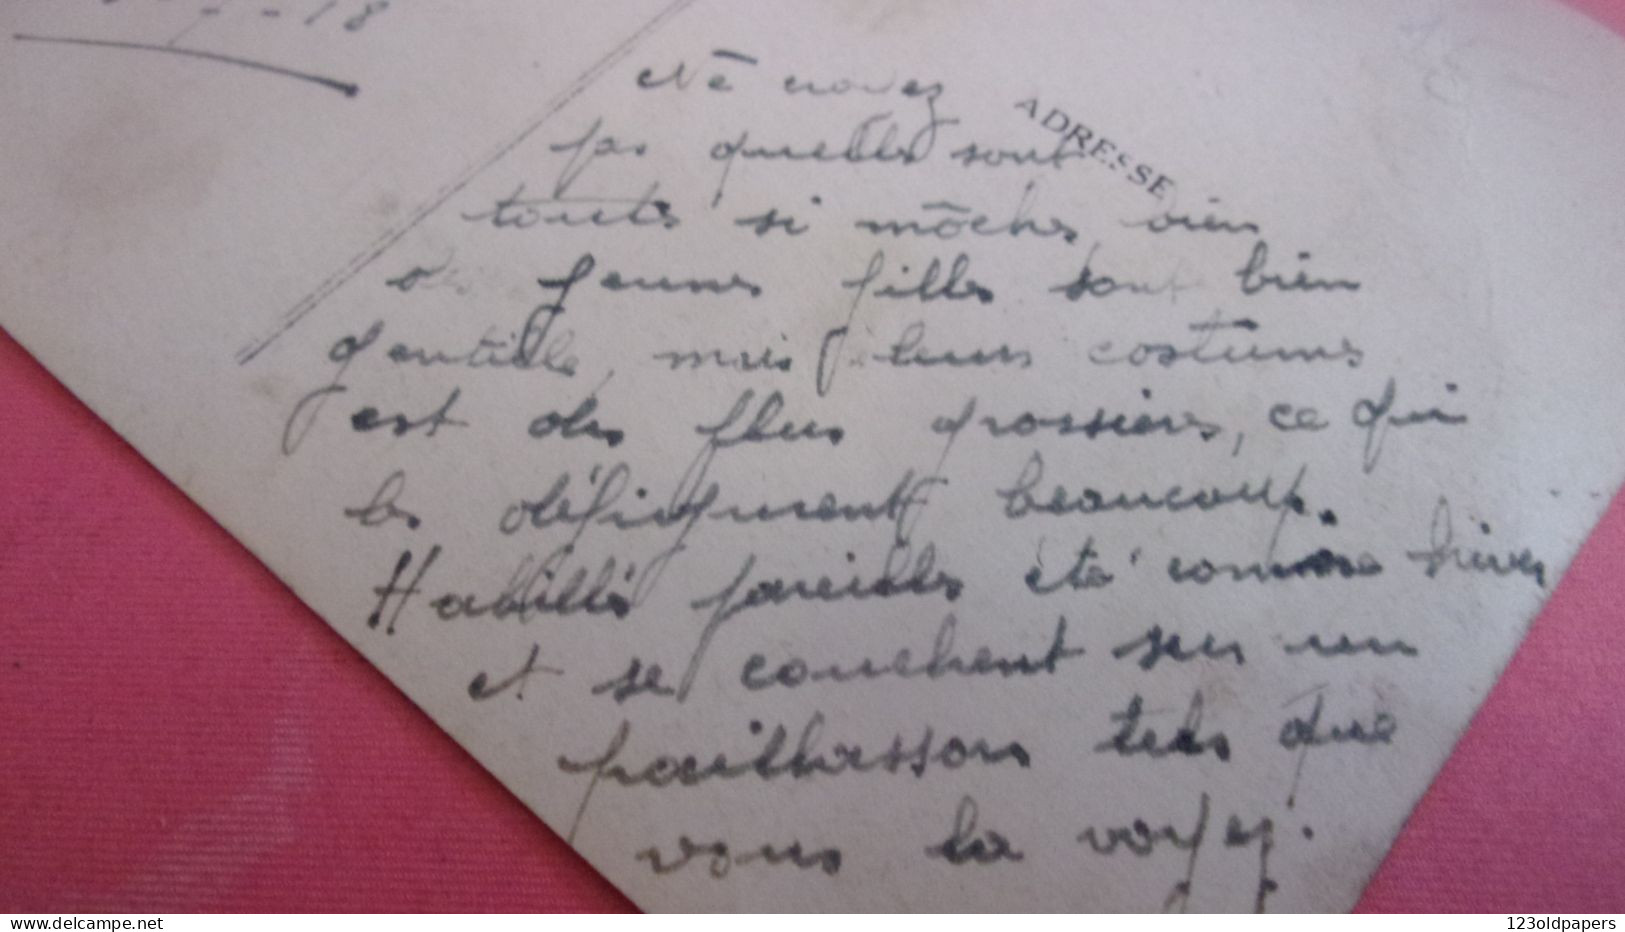 -18
Ne croyez
ADRESSE
pas quelles sont
toutes si môches, bien
des jeunes filles sont bien
gentille, mais leurs costumes
est des plus grossiers, ce qui
les défigurent beaucoup.
Habillés pareilles été comme hiver
et se couchent sur un
paillasson tels que
vous la voyez.
123oldpapers